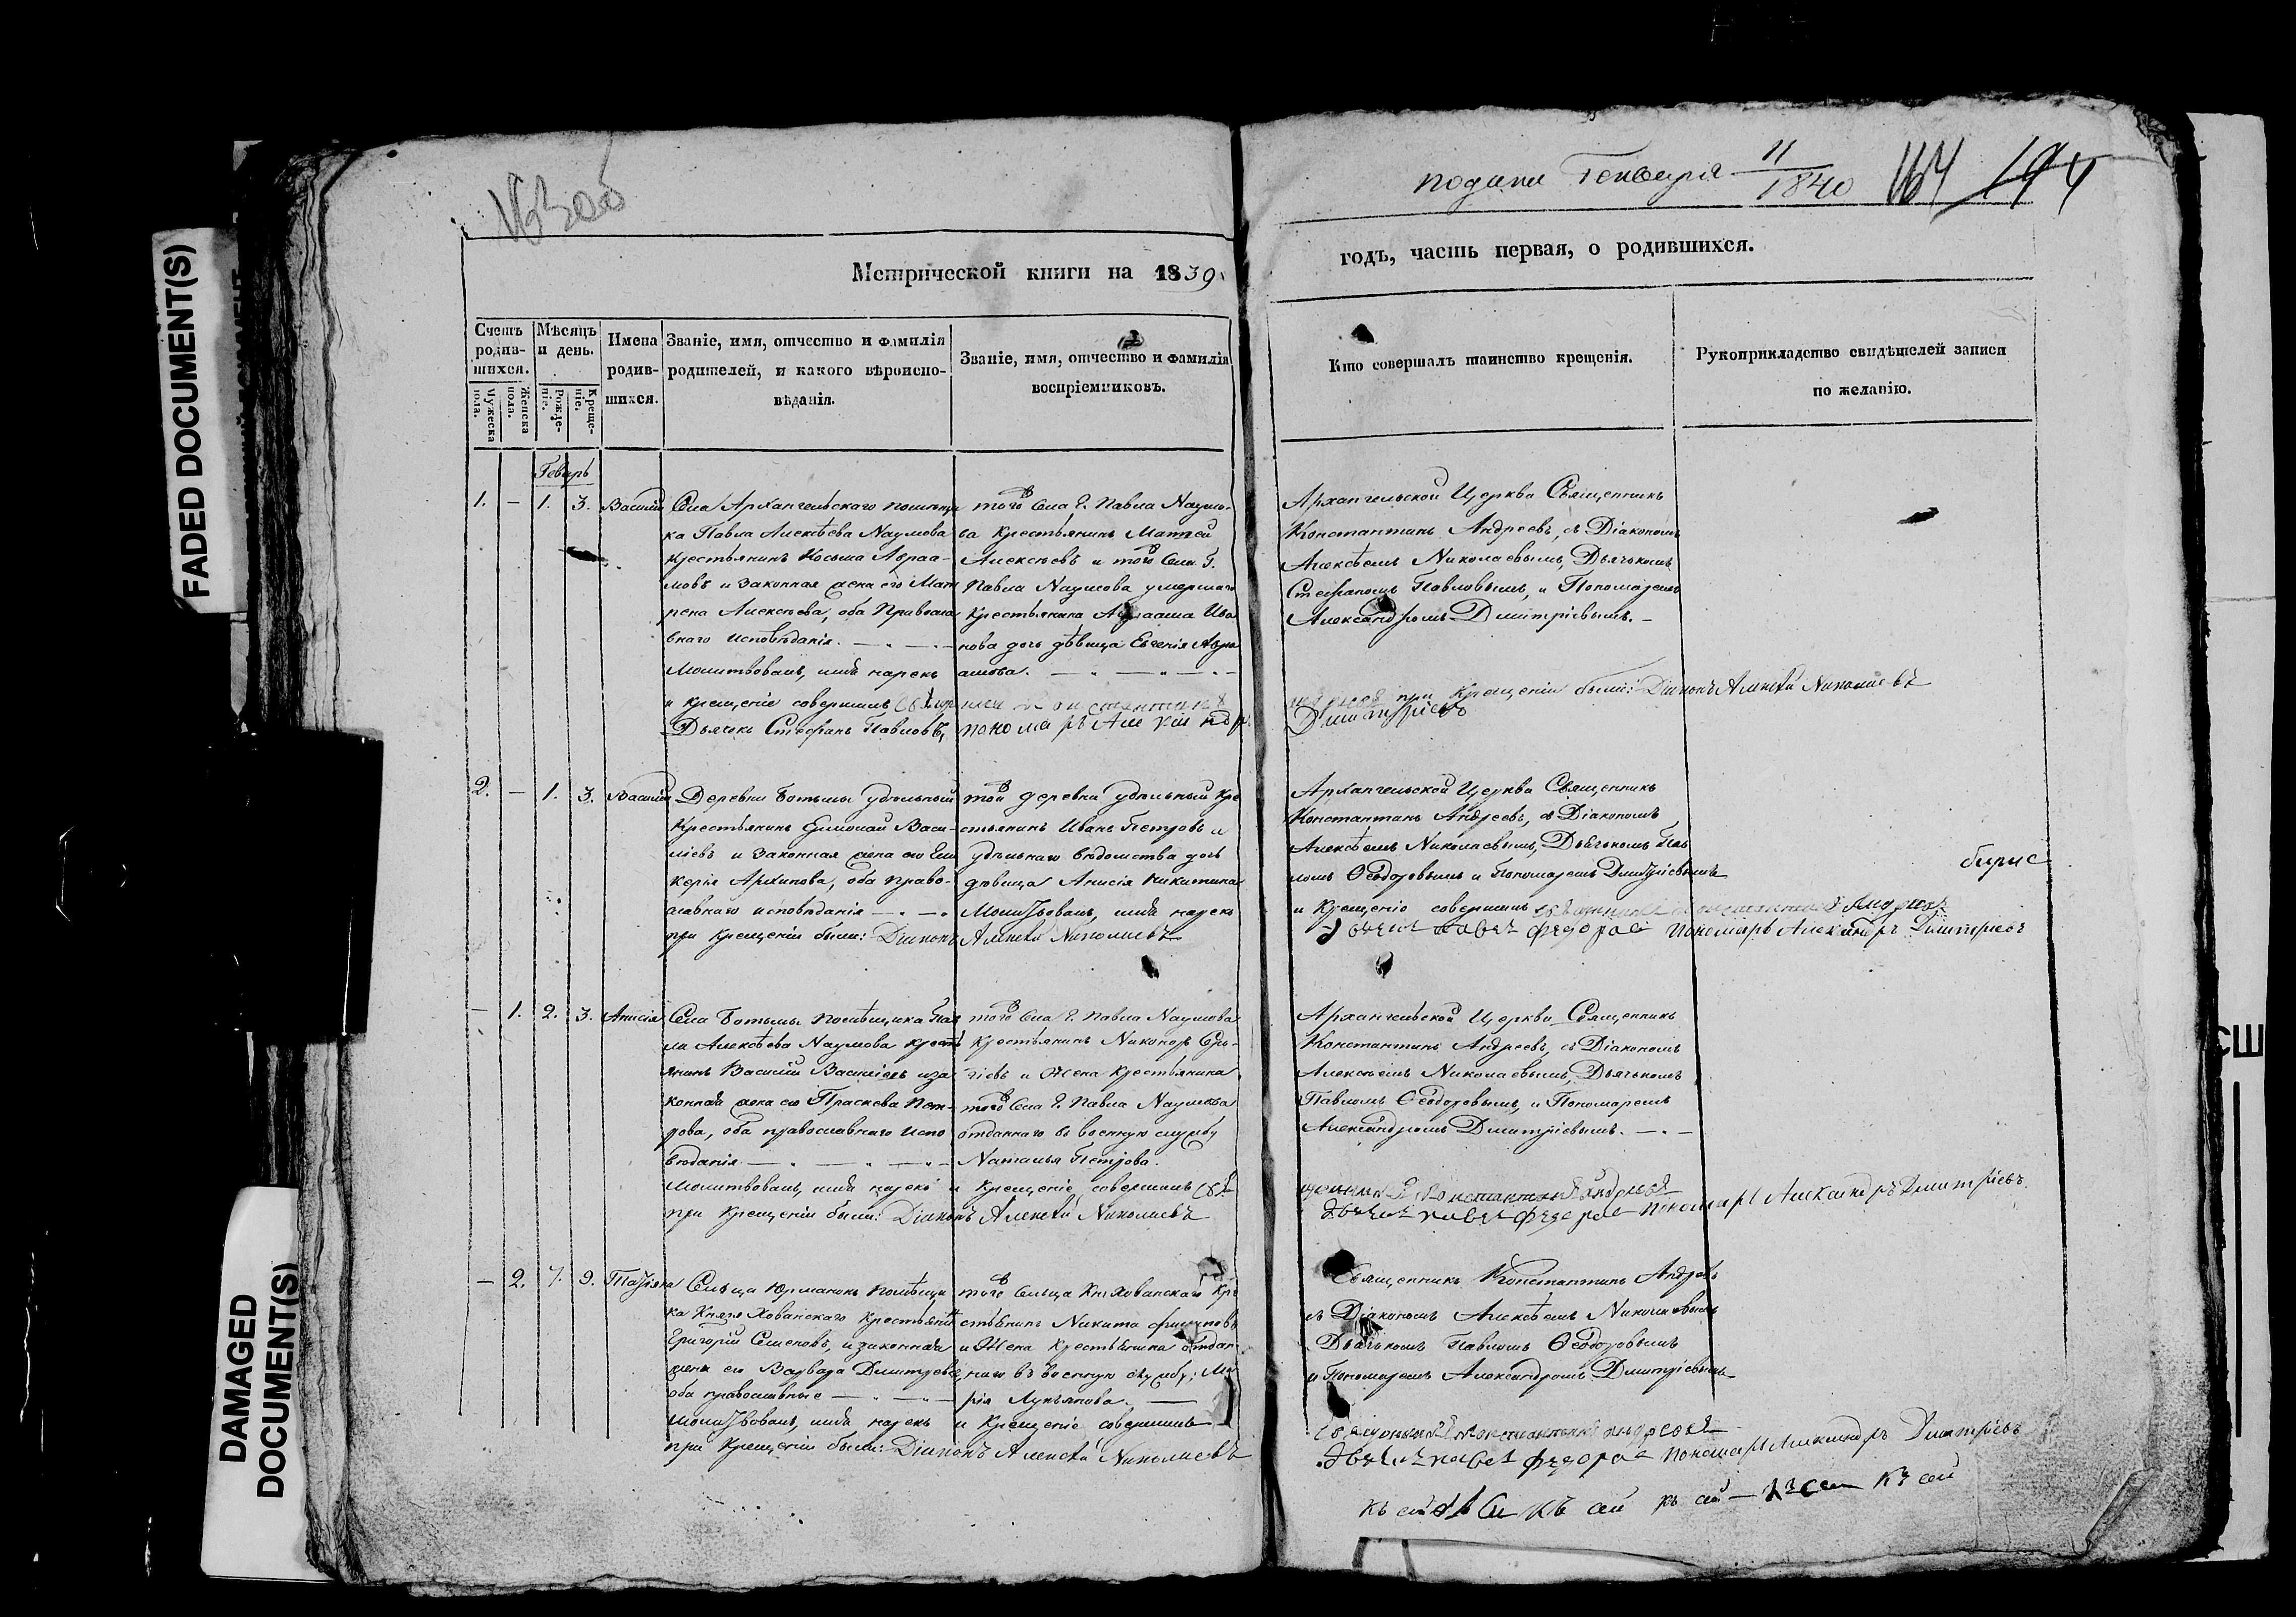 FADED DOCUMENT(S)
DAMAGED DOCUMENT(S)
подана Генваря 11/1840 164 194
Метрической книги на 1839
годъ, часть первая, о родившихся.
Счетъ родив-шихся.
Мужеска пола.
Женска пола.
Мѣсяцъ и день.
Рожде-ніе.
Креще-ніе.
Имена родив-шихся.
Званіе, имя, отчество и фамилія
родителей, и какого вѣроиспо-
вѣданія.
Званіе, имя, отчество и фамилія
воспріемниковъ.
Кто совершалъ таинство крещенія.
Рукоприкладство свидѣтелей записи
по желанію.
1. — 1. 3. Василій
Села Архангельскаго помѣщи
ка Павла Алексѣева Наумова
крестьянинъ Косьма Авраа-
мовъ и законная жена его Мат
рена Алексѣева, оба Правосла
внаго исповѣданія.
Молитвовалъ, имя нарекъ
и крещеніе совершалъ
Дьячекъ Стефанъ Павловъ,
того Села Г. Павла Наумо-
ва крестьянинъ Матвей
Алексѣевъ и того Села Г.
Павла Наумова умершаго
крестьянина Авраама Ива
нова дочь дѣвица Евгенія Авра
амова.
пономарь Александръ
Архангельской Церкви Священникъ
Константинъ Андреевъ, съ Діакономъ
Алексѣемъ Николаевымъ, Дьячькомъ
Стефаномъ Павловымъ, и Пономаремъ
Александромъ Дмитріевымъ.
при Крещеніи были: Діаконъ Алексѣй Николаевъ
Дмитріевъ
2. — 1. 3. Василій
Деревни Ботьмы удѣльный
крестьянинъ Ермолай Васи-
ліевъ и законная жена его Гли
керія Архипова, оба право-
славнаго исповѣданія
при Крещеніи были: Діаконъ
той деревни удѣльный кре
стьянинъ Иванъ Петровъ и
удѣльнаго вѣдомства дочь
дѣвица Анисія Никитина
Молитвовалъ, имя нарекъ
Алексѣй Николаевъ
Архангельской Церкви Священникъ
Константинъ Андреевъ, съ Діакономъ
Алексѣемъ Николаевымъ, Дьячькомъ Пав
ломъ Ѳеодоровымъ и Пономаремъ Дмитріевымъ
и Крещеніе совершалъ священникъ Константинъ Андреевъ
Дьячекъ Павелъ Федоровъ Пономарь Александръ Дмитріевъ
— 1. 2. 3. Анисія
Села Ботьмы помѣщика Пав
ла Алексѣева Наумова кресть
янинъ Василій Васильевъ и за
конная жена его Праскева Пет-
рова, оба православнаго испо
вѣданія.
Молитвовалъ, имя нарекъ
при Крещеніи были: Діаконъ
того Села Г. Павла Наумова
крестьянинъ Никоноръ Сер-
гіевъ и Жена крестьянина
того Села Г. Павла Наумова
отданнаго въ военную службу
Наталья Петрова.
и Крещеніе совершалъ свя
Алексѣй Николаевъ
Архангельской Церкви Священникъ
Константинъ Андреевъ, съ Діакономъ
Алексѣемъ Николаевымъ, Дьячькомъ
Павломъ Ѳеодоровымъ, и Пономаремъ
Александромъ Дмитріевымъ.
щенникъ Константинъ Андреевъ
Дьячекъ Павелъ Федоровъ Пономарь Александръ Дмитріевъ
— 2. 7. 9. Татіяна
Сельца Юрманокъ помѣщи
ка Князя Хованскаго крестьянинъ
Григорій Семеновъ, и законная
жена его Варвара Дмитрева
оба православные
Молитвовалъ, имя нарекъ
при Крещеніи были: Діаконъ
того Сельца Кн. Хованскаго Кре
стьянинъ Никита Филиповъ
и Жена крестьянина отдан
наго въ военную службу, Ма
рія Лукьянова.
и Крещеніе совершалъ
Алексѣй Николаевъ
Священникъ Константинъ Андреевъ
съ Діакономъ Алексѣемъ Николаевымъ
Дьячькомъ Павломъ Ѳеодоровымъ
и Пономаремъ Александромъ Дмитріевымъ
священникъ Константинъ Андреевъ
Дьячекъ Павелъ Федоровъ Пономарь Александръ Дмитріевъ
къ сей къ сей къ сей